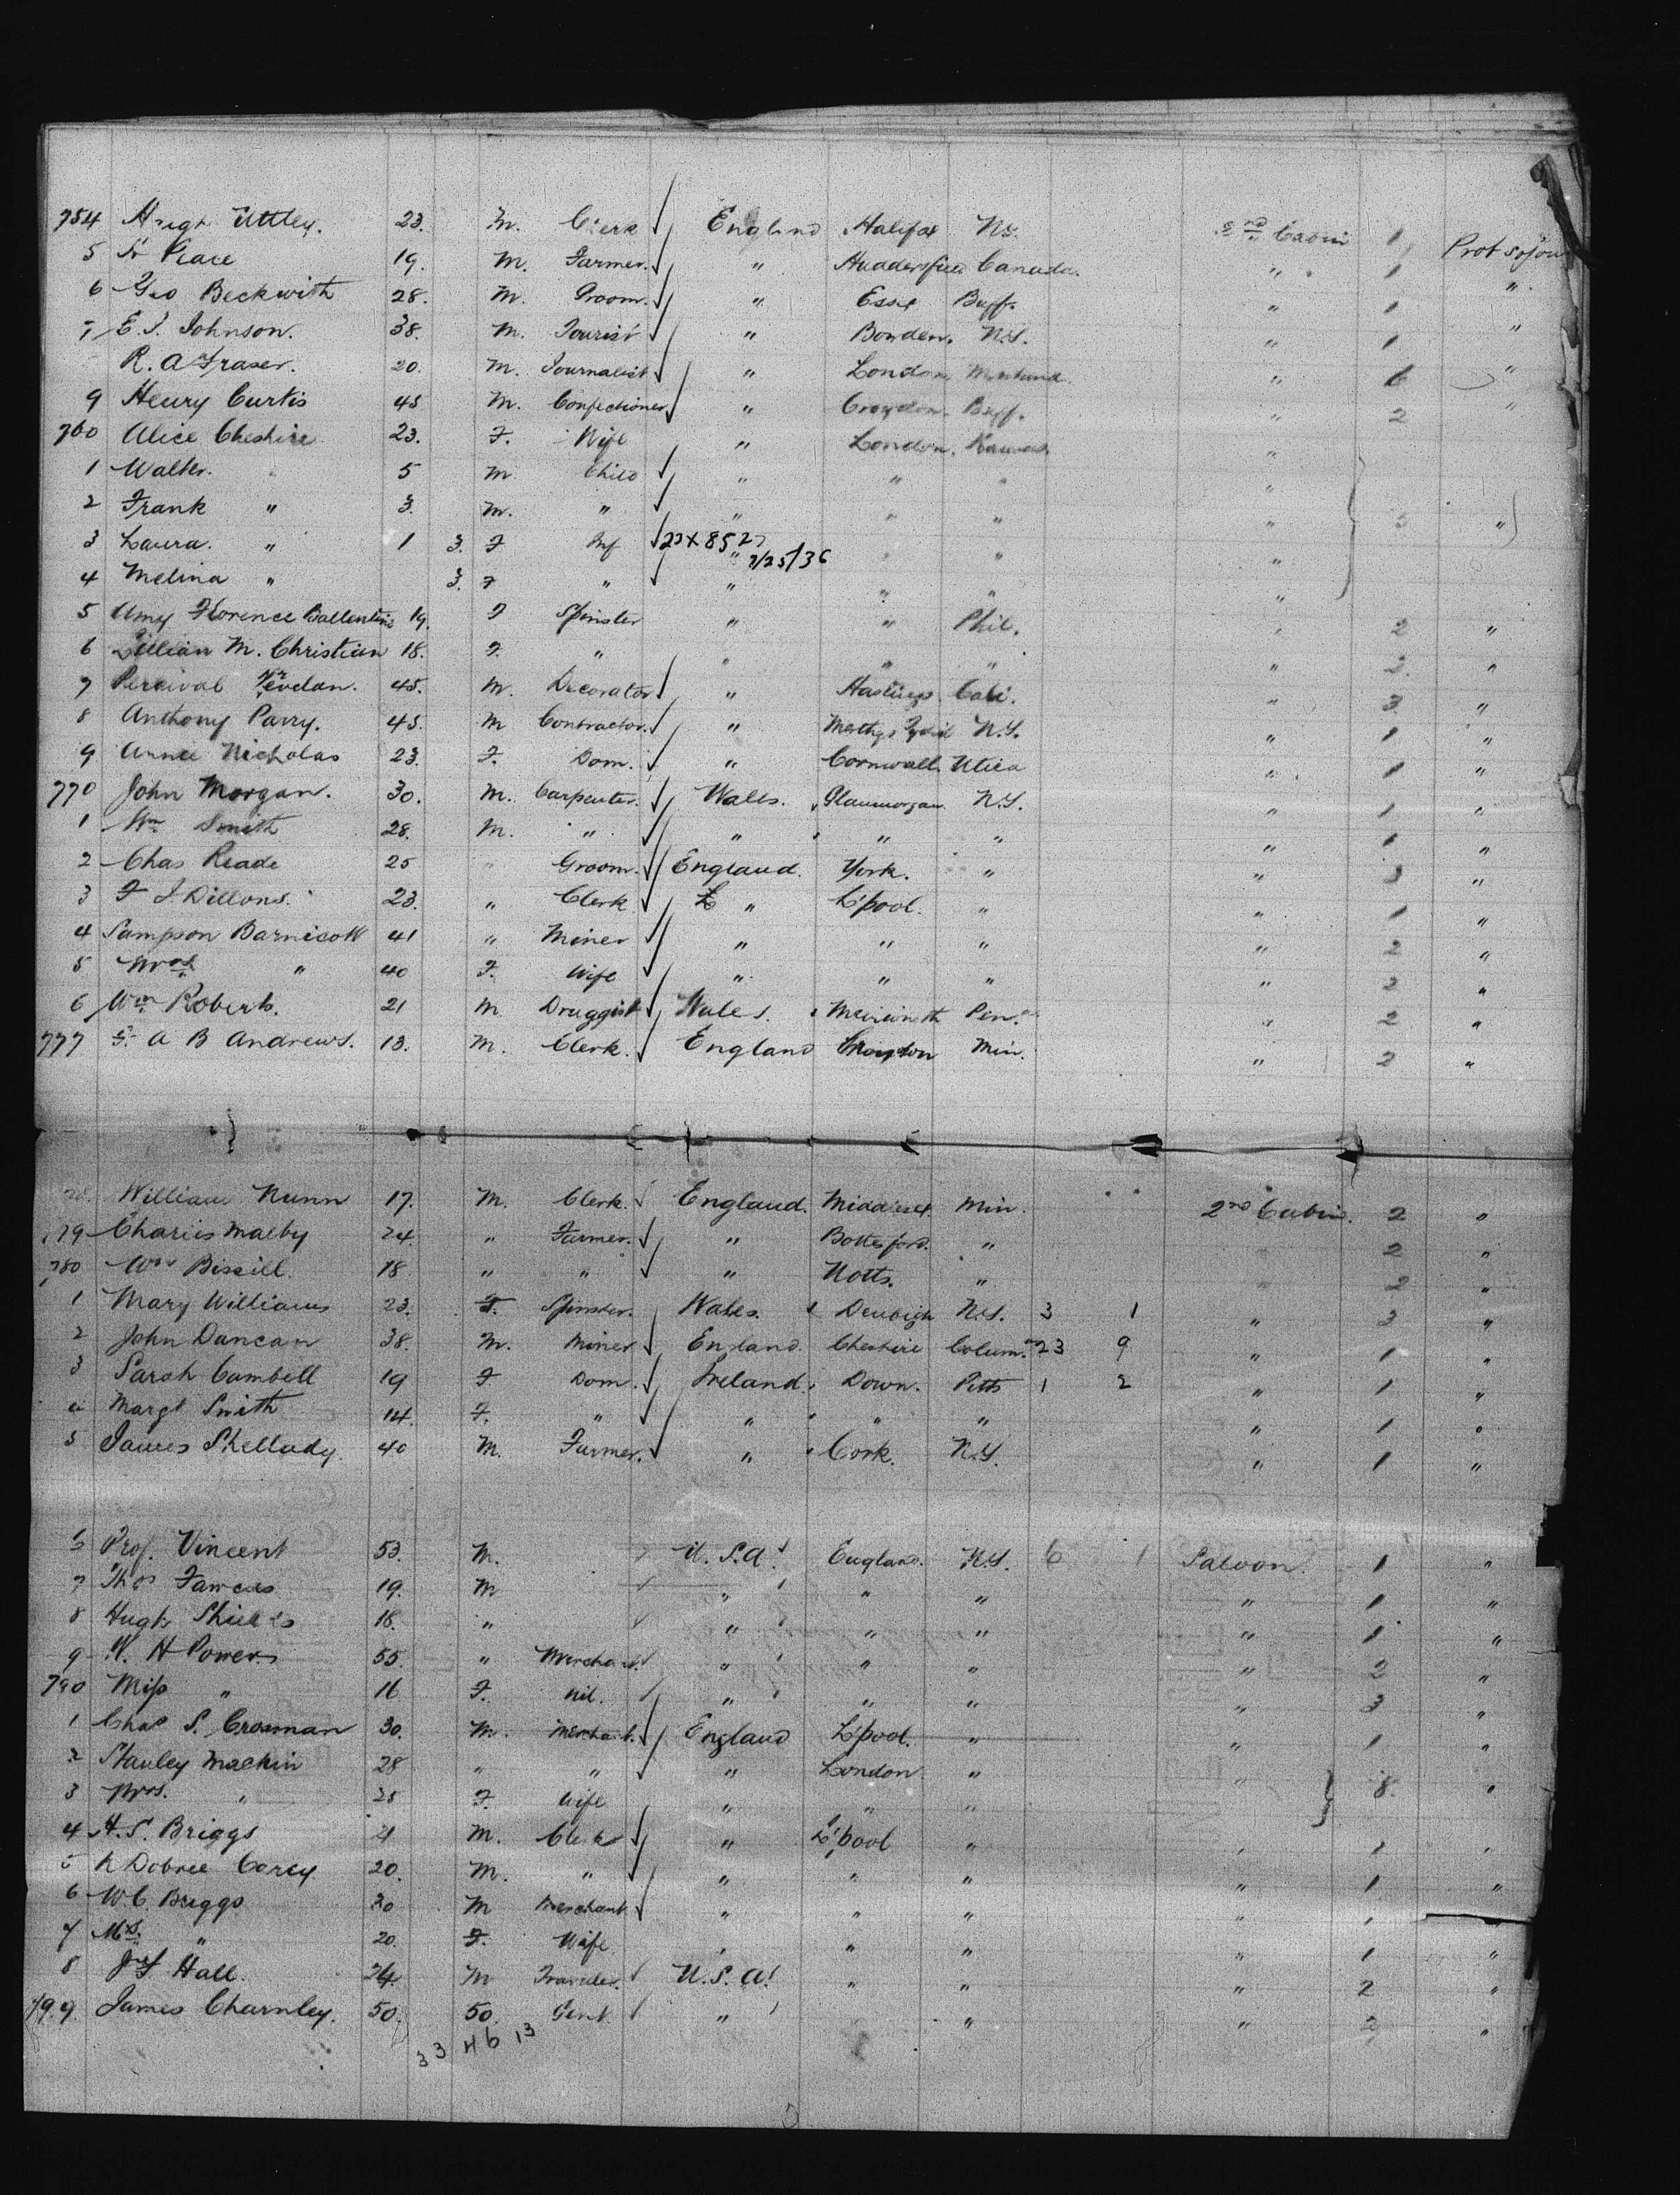 754 Uttley. 23. M. Clerk England Halifax N.Y. 2nd Cabin 1 Prot sojou
5 Peace 19. M. Farmer. " Huddersfield Canada. " 1 "
6 Geo Beckwith 28. M. Groom. " Essex Buff. " 1 "
7 E. J. Johnson. 38. M. Tourist " Bowden. N.Y. " 1 "
R. A Fraser. 20. M. Journalist " London " 6 "
9 Henry Curtis 45 M. Confectioner. " Croydon. Buff. " 2
760 Alice Cheshire 23. F. Wife " London. "
1 Walter. " 5 M. Child " " " "
2 Frank " 3. M. " " " " " "
3 Laura. " 1 3. F Inf 23X8527 " 7/25/36 " " "
4 Melina " 3. F " " " " "
5 Amy Florence Ballentine 19. F Spinster " " Phil. " 2 "
6 Lillian M. Christian 18. F. " " " " " 2. "
7 Percival 45. M. Decorator " Hastings Cali. " 3 "
8 Anthony Parry. 45. M Contractor. " N.Y. " 1 "
9 Annee Nicholas 23. F. Dom. " Cornwall. Utica " 1 "
770 John Morgan. 30. M. Carpenter. Wales. Glammorgan N.Y. " 1 "
1 Wm Smith 28. M. " " " " " 1 "
2 Chas Reade 25 " Groom. England. York. " " 3 "
3 F J Dillons. 23. " Clerk " L'pool. " " 1 "
4 Sampson Barnicott 41 " Miner " " " " 2 "
5 Mrs " 40 F. Wife " " " " 2 "
6 Wm Roberts. 21 M. Druggist Wales. Pen. " 2 "
777 A B Andrews. 18. M. Clerk. England Croydon Min. " 2 "
William Nunn 17. M. Clerk. England. Middlesex Min. 2nd Cabin. 2 "
79 Charles Malby 24. " Farmer. " Bottesford. " 2 "
780 Wm Bissill. 18 " " " Notts. " " 2 "
1 Mary Williams 23. F. Spinster. Wales. Denbigh N.Y. 3 1 " 3 "
2 John Duncan 38. M. Miner England. Cheshire Colum. 23 9 " 1 "
3 Sarah Cambell 19 F Dom. Ireland. Down. Pitts 1 2 " 1 "
4 Margt Smith 14. F. " " " " " 1 "
5 James Shellady. 40 M. Farmer. " Cork. N.Y. " 1 "
6 Prof. Vincent 53. M. U.S.A. England. N.Y. 6 1 Saloon. 1 "
7 Thos 19. M " " " " 1 "
8 Hugh Shields 18. " " " " " 1 "
9 W. H Powers 55. " Merchant. " " " " 2 "
790 Miss " 16 F. nil. " " " " 3 "
1 Chas S. Crosman 30. M. Merchant. England L'pool. " " 1 "
2 Stanley Machin 28 " " " London " " 8. "
3 Mrs. " 25 F. Wife " " "
4 H. S. Briggs 21 M. Clerk " L'pool " " 1 "
5 R Dobree Corey 20. M. " " " " " 1 "
6 W C. Briggs 30 M Merchant " " " " 1
7 Mrs. " 20. F. Wife " " " " 1 "
8 Hall. 24. M Traveler. U.S.A. " " " 2 "
799 James Charnley. 50. 50. Gent " " " 2 "
33 46 13